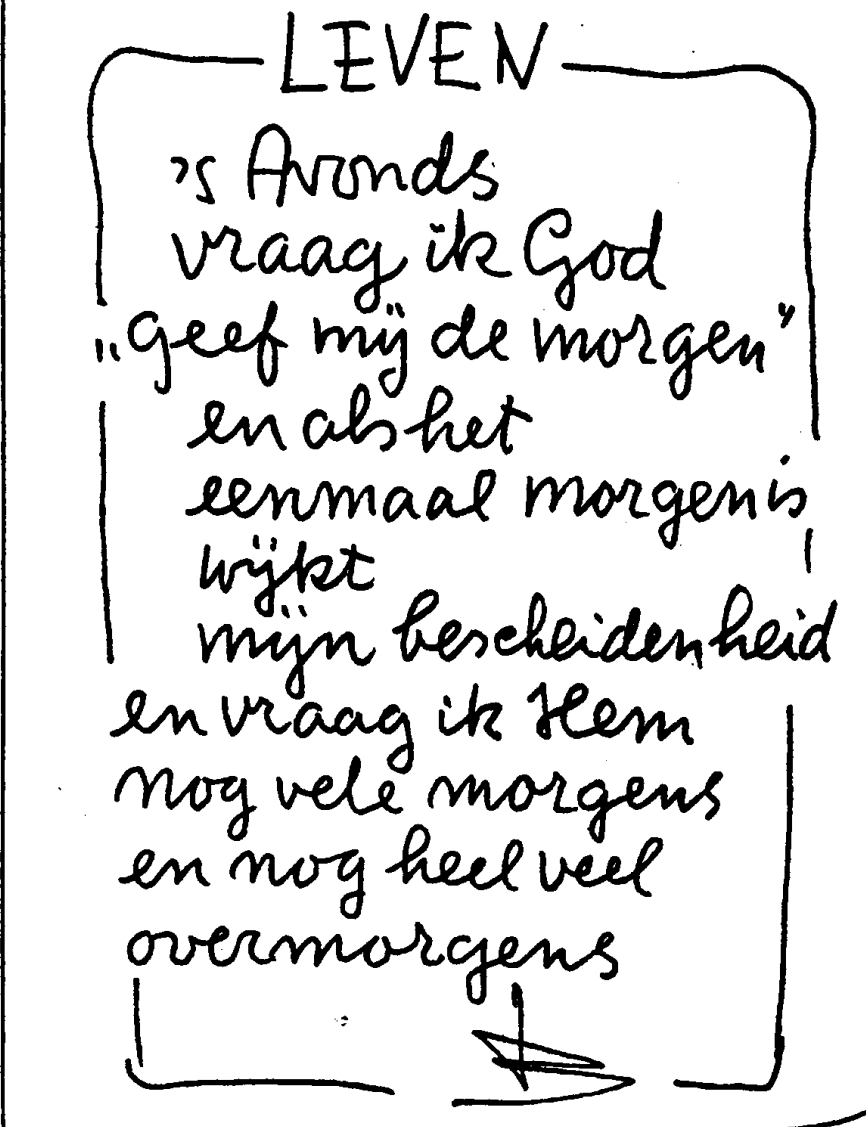 LEVEN
's Avonds
vraag ik God
„geef mij de morgen”
en als het
eenmaal morgen is
wijkt
mijn bescheidenheid
en vraag ik Hem
nog vele morgens
en nog heel veel
overmorgens